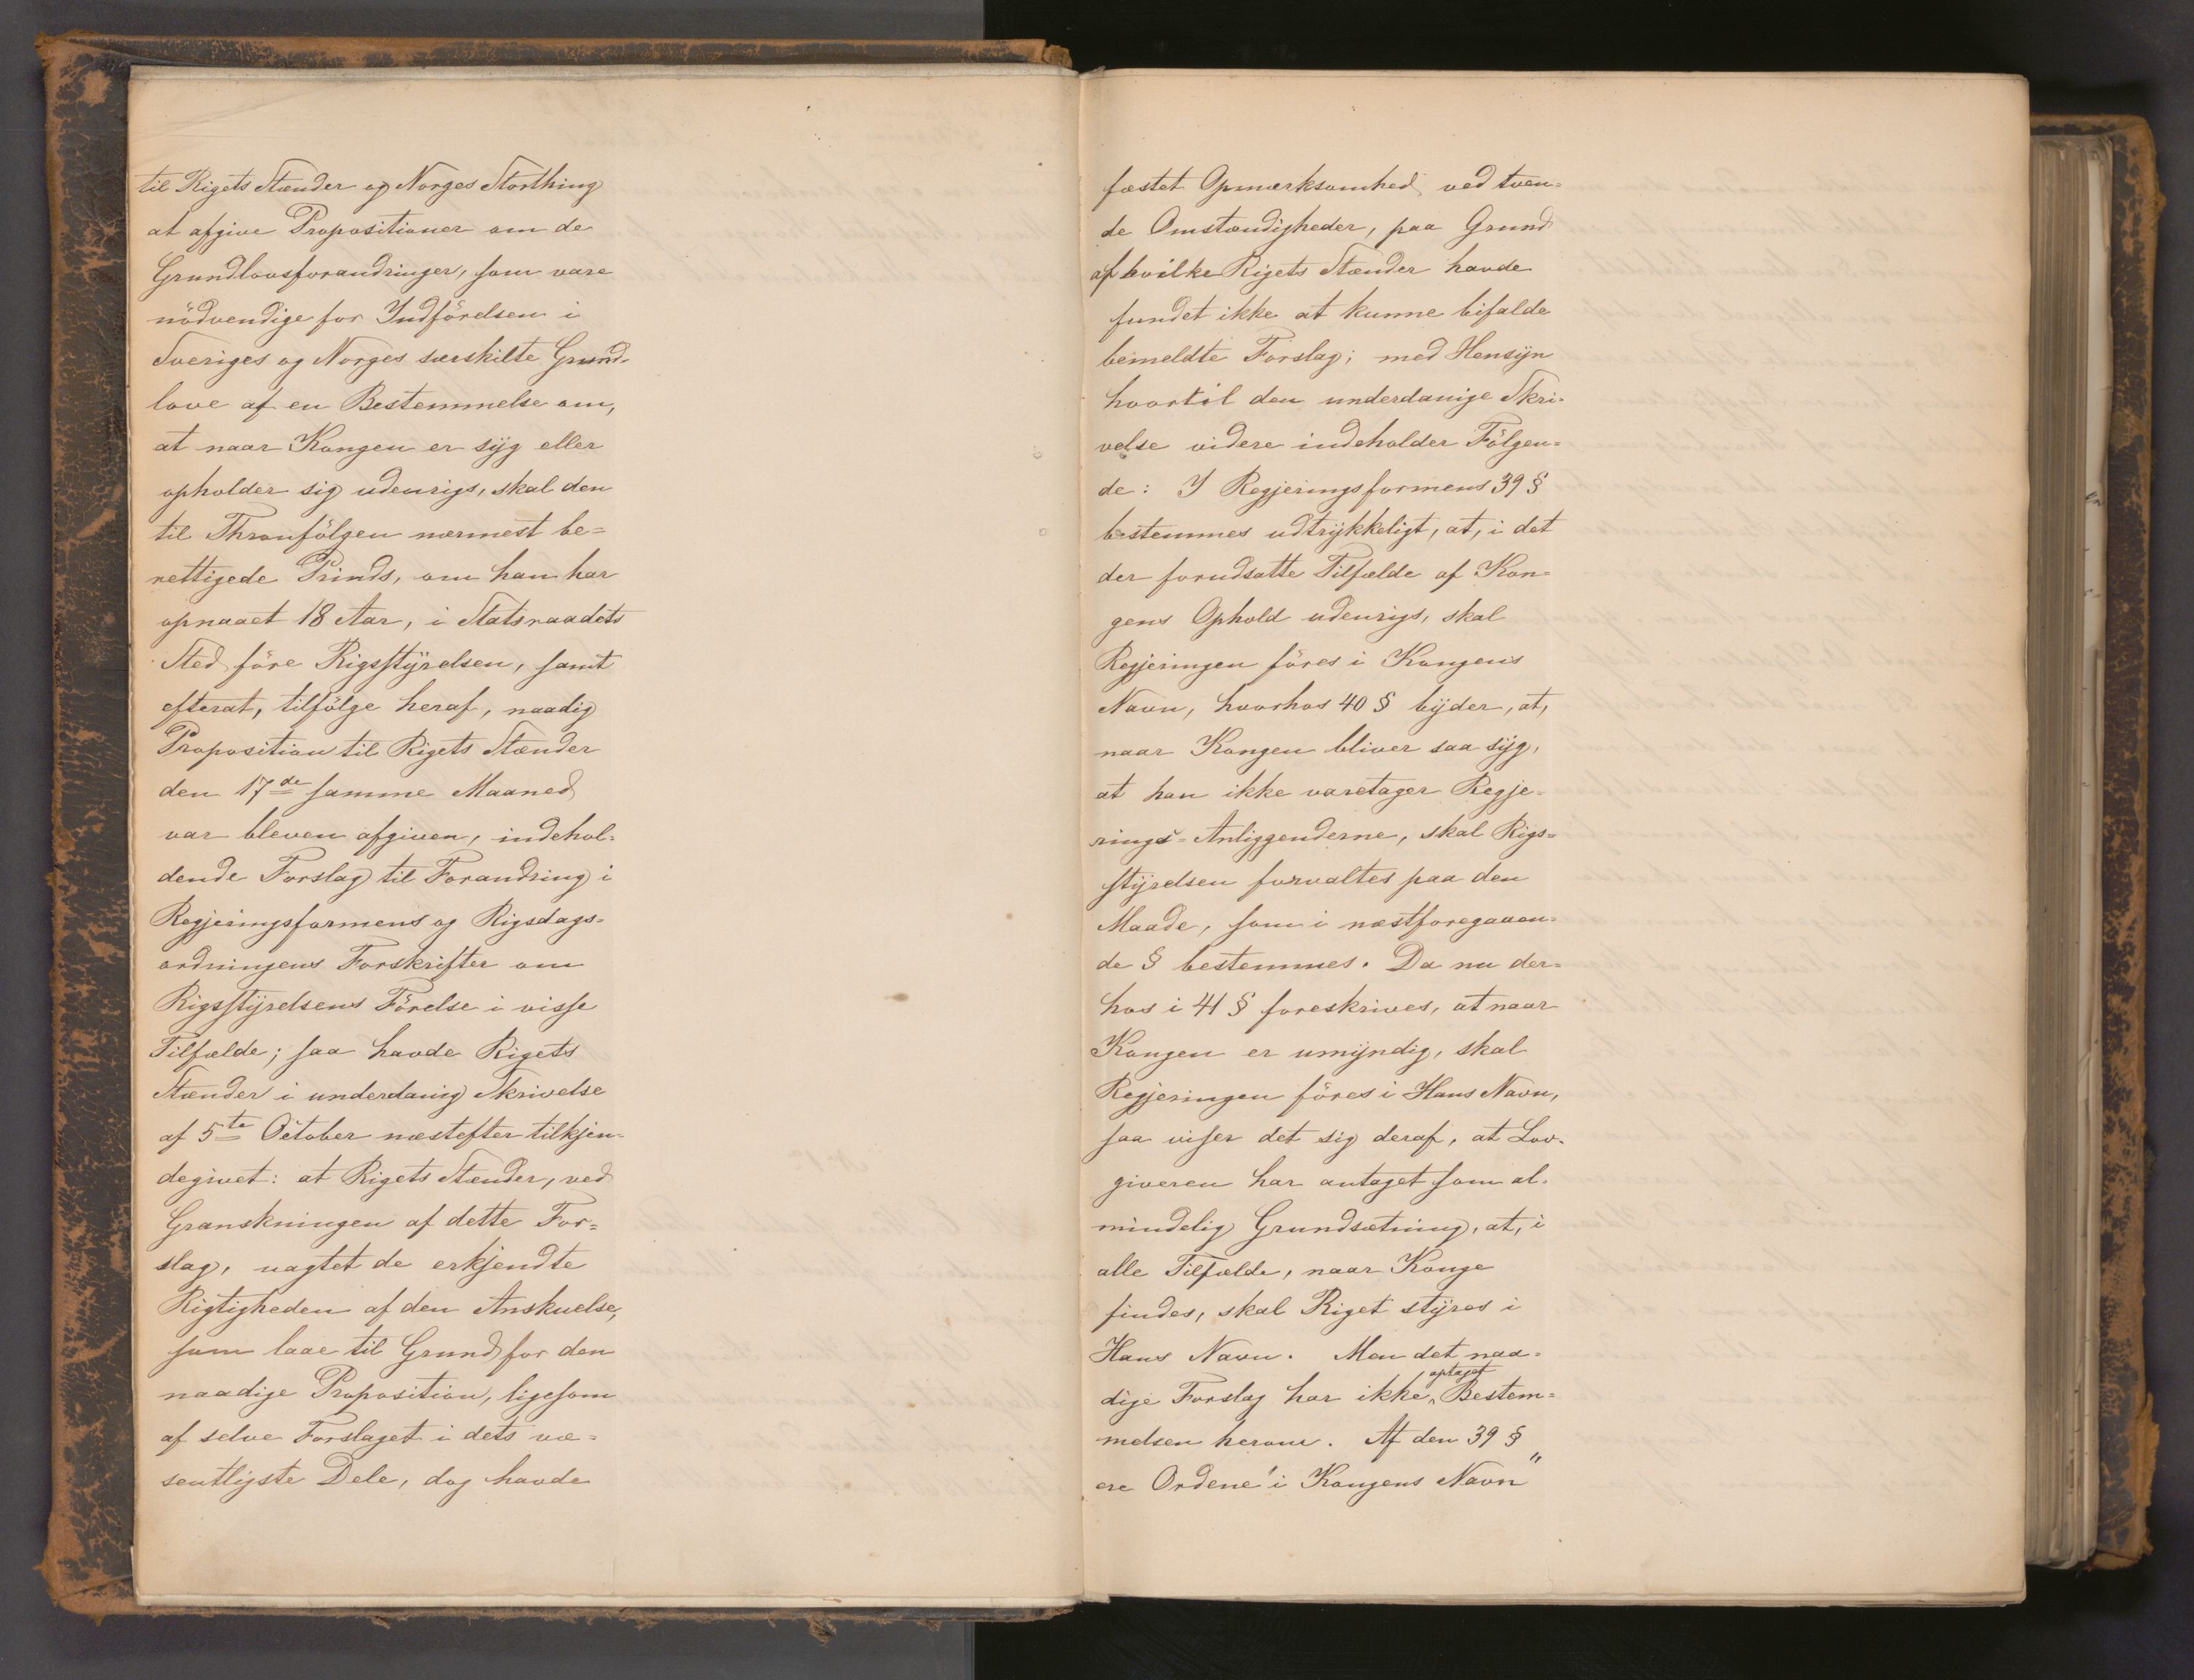 til Rigets Stænder og Norges Storthing
at afgive Propositioner om de
Grundlovsforandringer, som vare
nödvendige for Indförelsen i
Sveriges og Norges særskilte Grund-
love af en Bestemmelse om,
at naar Kongen er sÿg eller
opholder sig udenrigs, skal den
til Thronfölgen nærmest be=
rettigede Prinds, om han har
opnaaet 18 Aar, i Statsraadets
Sted före Rigsstÿrelsen, samt
efterat, tilfölge heraf, naadig
Proposition til Rigets Stænder
den 17de samme Maaned
var bleven afgiven, indehol=
dende Forslag til Forandring i
Regjeringsformens og Rigsdags=
ordningens Forskrifter om
Rigsstÿrelsens Förelse i visse
Tilfælde; saa havde Rigets
Stænder i underdanig Skrivelse
af 5te October næstefter tilkjen=
degivet: at Rigets Stænder, ved
Granskningen af dette For=
slag, uagtet de erkjendte
Rigtigheden af den Anskuelse,
som laae til Grund for den
naadige Proposition, ligesom
af selve Forslaget i dets væ=
sentligste Dele, dog havde
fæstet Opmærksomhed ved tven=
de Omstændigheder, paa Grund
af hvilke Rigets Stænder havde
fundet ikke at kunne bifalde
bemeldte Forslag; med Hensÿn
hvortil den underdanige Skri=
velse videre indeholder Fölgen=
de: I Regjeringsformens 39 §
bestemmes udtrÿkkeligt, at, i det
der forudsatte Tilfælde af Kon=
gens Ophold udenrigs, skal
Regjeringen föres i Kongens
Navn, hvorhos 40 § bÿder, at,
naar Kongen bliver saa sÿg,
at han ikke varetager Regje=
rings=Anliggenderne, skal Rigs=
stÿrelsen forvaltes paa den
Maade, som i næstforegaaen=
de § bestemmes. Da nu der=
hos i 41 § foreskrives, at naar
Kongen er umÿndig, skal
Regjeringen föres i Hans Navn,
saa viser det sig deraf, at Lov=
giveren har antaget som al=
mindelig Grundsætning, at, i
alle Tilfælde, naar Konge
findes, skal Riget stÿres i
Hans Navn. Men det naa=
dige Forslag har ikke optaget Bestem=
melsen herom. Af den 39 §
ere Ordene "i Kongens Navn"